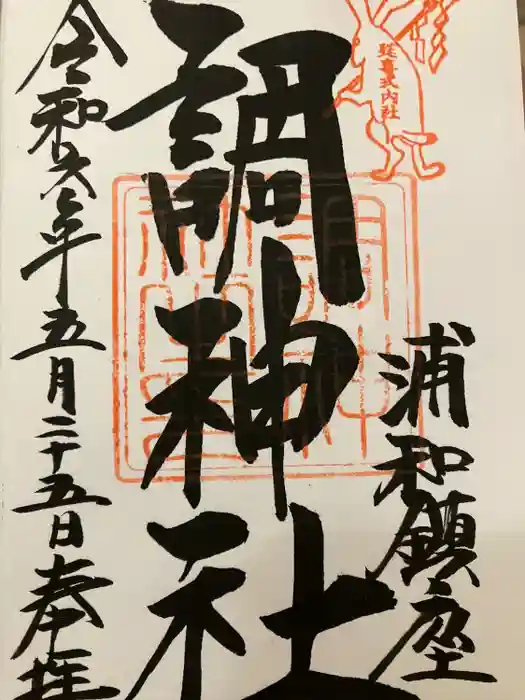 延喜式内社
浦和鎮座
調神社
令和六年五月二十五日奉拝